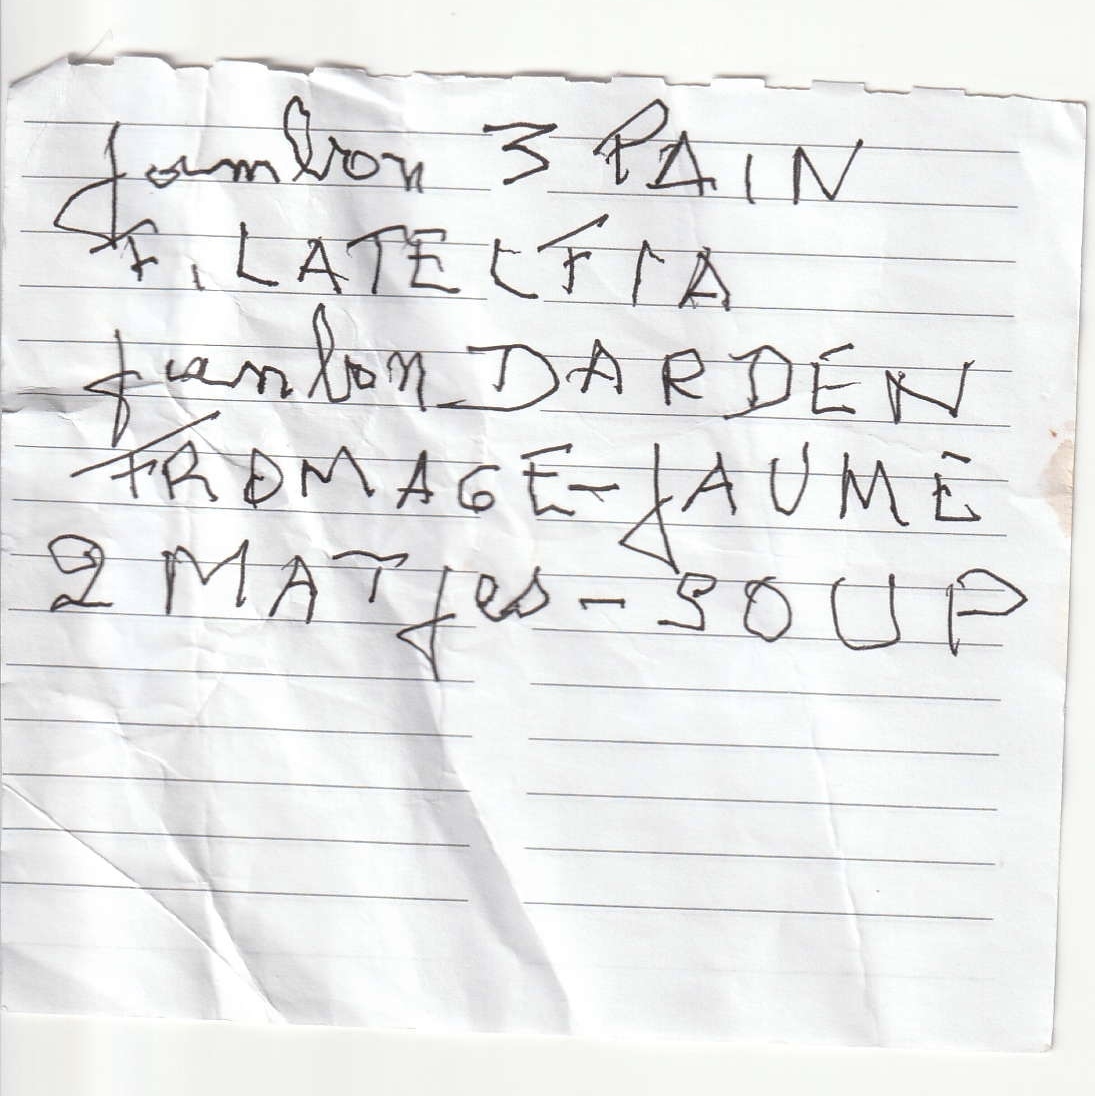 jambon 3 PAIN
FILATELFIA
jambon DARDEN
FROMAGE-JAUME
2 MATjes-SOUP